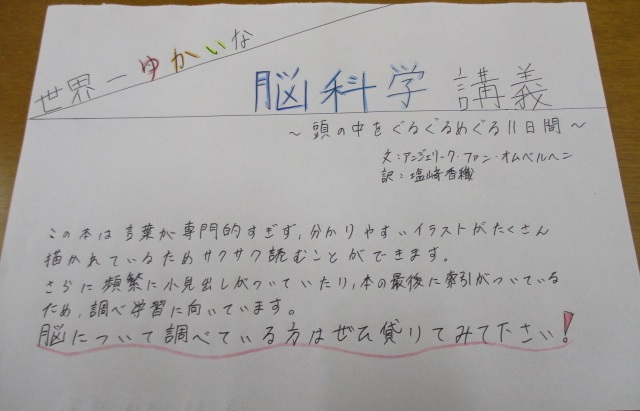 世界一ゆかいな
脳科学講義
~頭の中をぐるぐるめぐる11日間~
文:アンジェリーク・ファン・オムベルヘン
訳:塩崎香織
この本は言葉が専門的すぎず、分かりやすいイラストがたくさん
描かれているためサクサク読むことができます。
さらに頻繁に小見出しがついていたり、本の最後に索引がついている
ため、調べ学習に向いています。
脳について調べている方はぜひ借りてみて下さい!